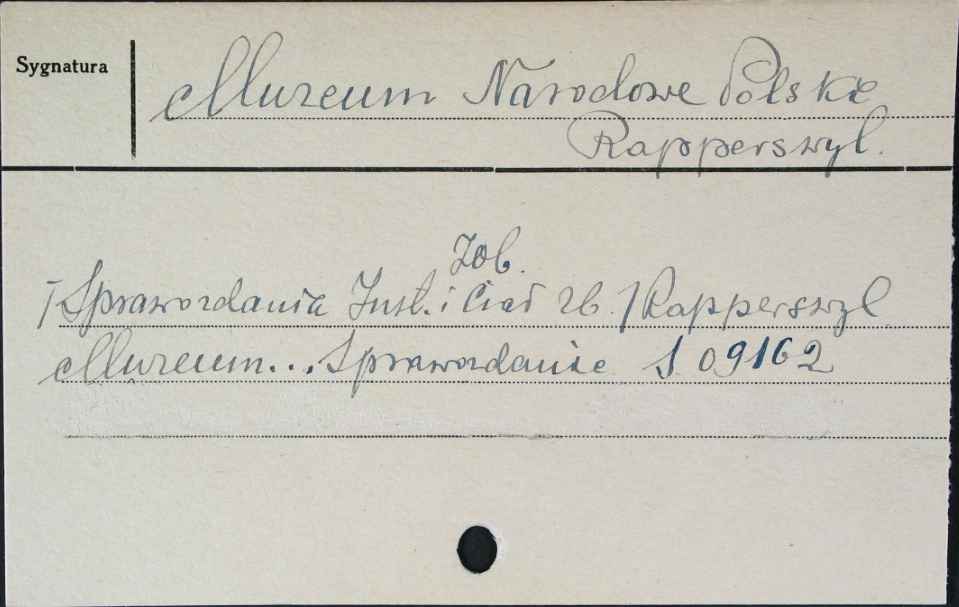 Sygnatura
Muzeum Narodowe Polskie
Rapperswyl.
Zob.
/Sprawozdania Inst. i Ciał zb./Rapperswyl
Muzeum... Sprawozdanie S 09162